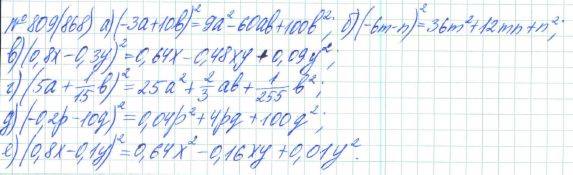 №809(868) а) (-3a+10b)²=9a²-60ab+100b²; б) (-6m-n)²=36m²+12mn+n²;
в) (0,8x-0,3y)²=0,64x-0,48xy+0,09y²;
г) (5a+1/15b)²=25a²+2/3ab+1/255b²;
д) (-0,2p-10q)²=0,04p²+4pq+100q²;
е) (0,8x-0,1y)²=0,64x²-0,16xy+0,01y².